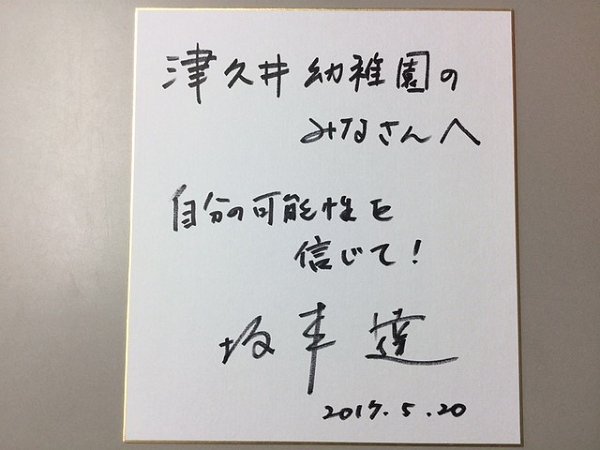 津久井幼稚園の
みなさんへ
自分の可能性を
信じて！
坂本 達
2017.5.20